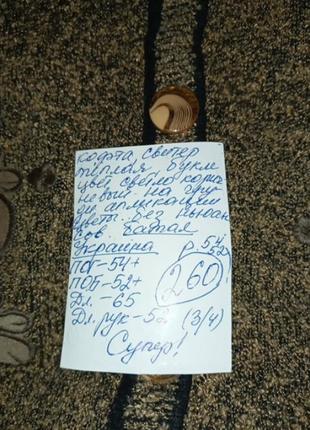 кофта, свитер
тёплая букле
цвет светло корич
невый. на гру
ди апликации
цветы. Без нюан
сов. Батал
Украина р. 54,
52
ПОГ-54+ 260
ПОБ-52+
Дл. -65
Дл. рук-52 (3/4)
Супер!